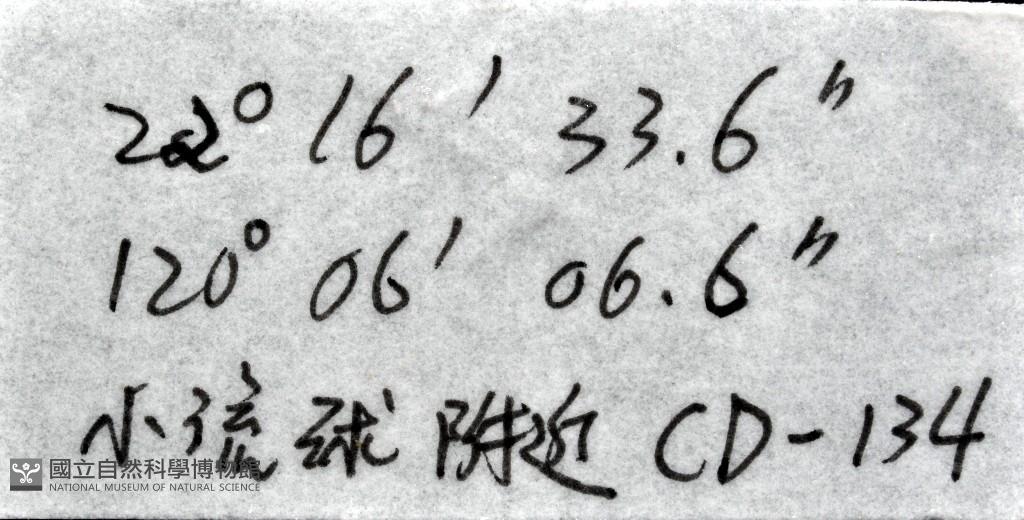 22° 16′ 33.6″
120° 06′ 06.6″
小琉球 附近 CD-134
國立自然科學博物館
NATIONAL MUSEUM OF NATURAL SCIENCE